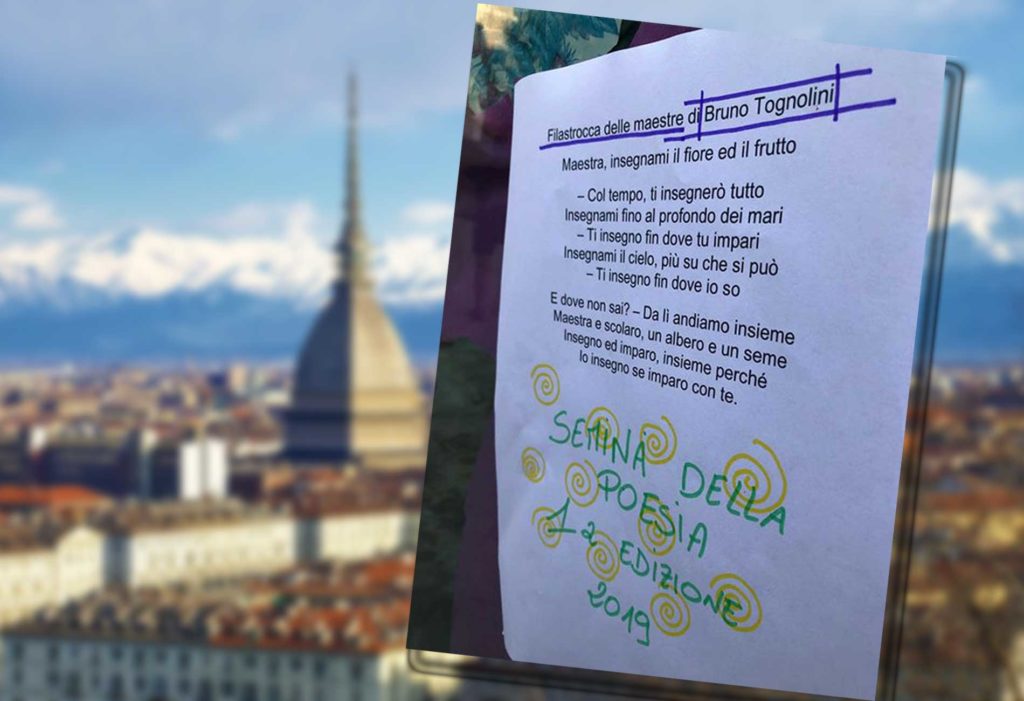 Filastrocca delle maestre di Bruno Tognolini
Maestra, insegnami il fiore ed il frutto
– Col tempo, ti insegnerò tutto
Insegnami fino al profondo dei mari
– Ti insegno fin dove tu impari
Insegnami il cielo, più su che si può
– Ti insegno fin dove io so
E dove non sai? – Da lì andiamo insieme
Maestra e scolaro, un albero e un seme
Insegno ed imparo, insieme perché
Io insegno se imparo con te.
SEMINA DELLA
POESIA
1a EDIZIONE
2019